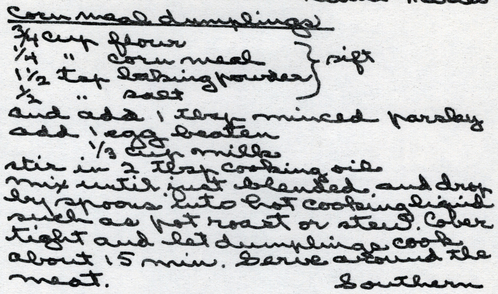 corn meal dumplings
3/4 cup flour
1/4 " corn meal
1 1/2 tsp baking powder } sift
1/2 " salt
and add 1 tbsp minced parsley
add 1 egg beaten
1/3 cup milk
stir in 2 tbsp cooking oil
mix until just blended, and drop
by spoons into hot cooking liquid
such as pot roast or stew. Cover
tight and let dumplings cook
about 15 min. Serve around the
meat. Southern